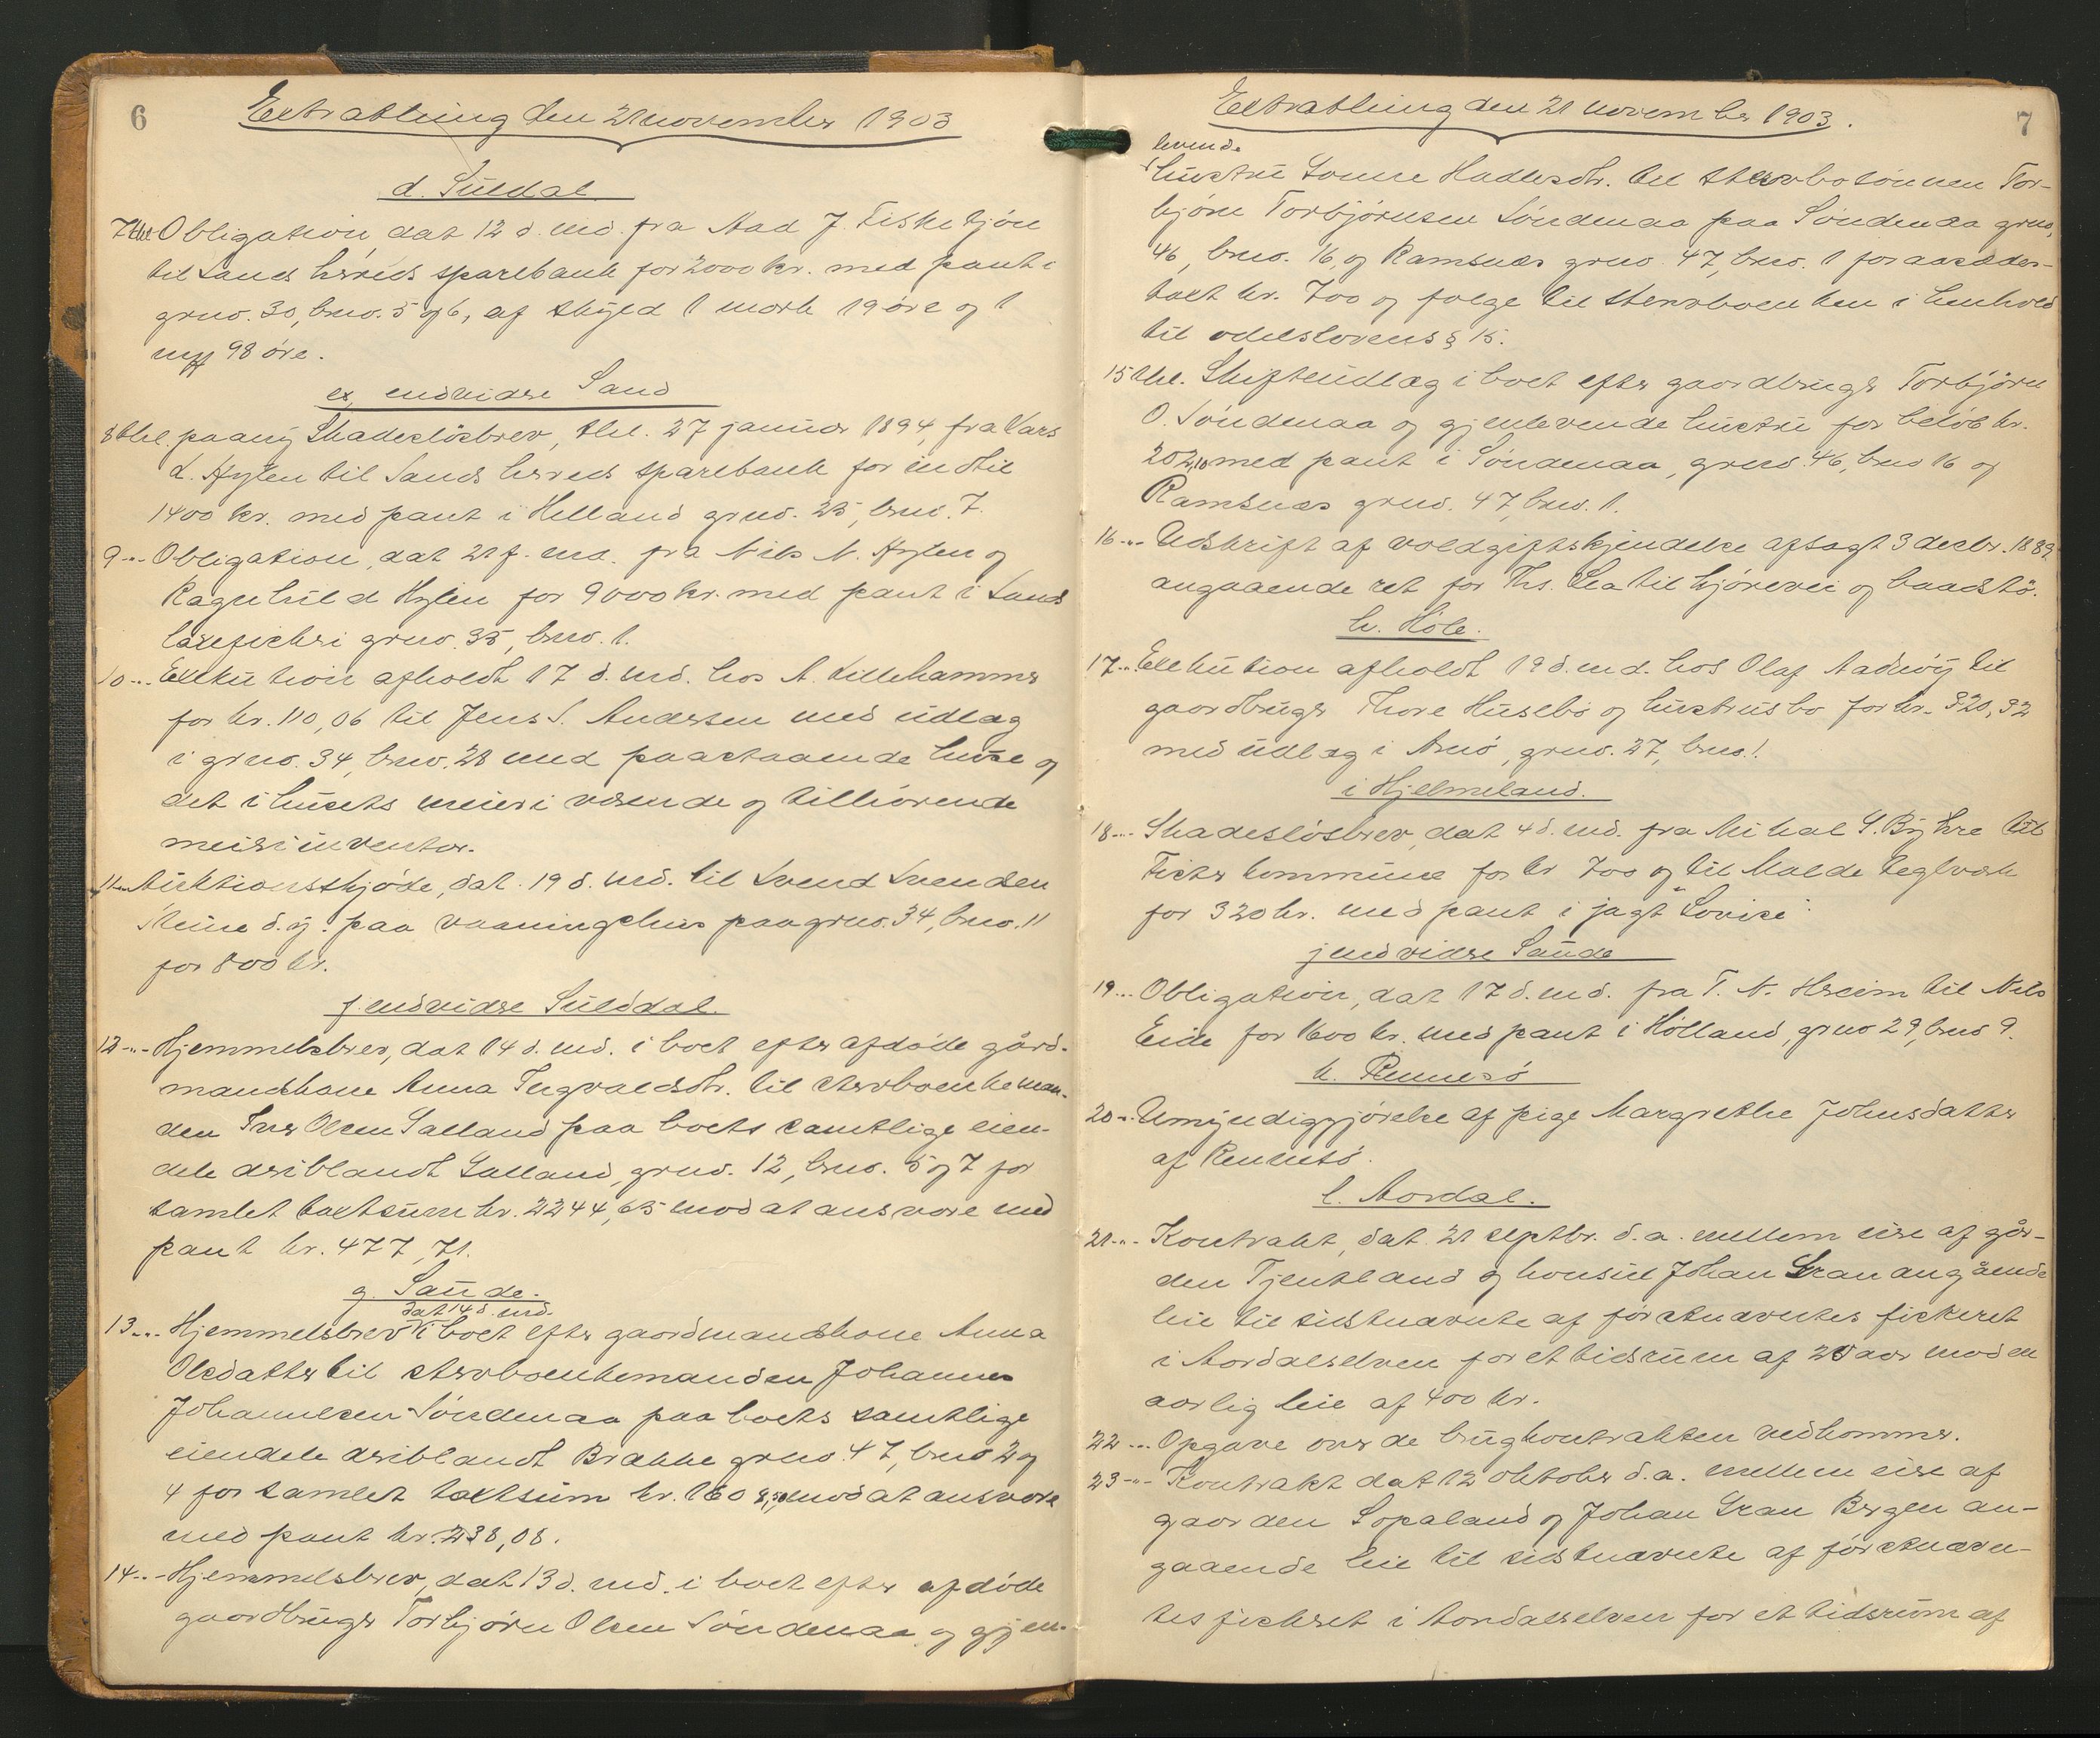 6
Extrathing den 21 november 1903
d. Suldal.
7 thl. Obligation, dat 12 d. md. fra Aad J. Fisketjön
til Sands herreds sparebank for 2000 kr. med pant i
grno. 30, brno. 5 og 6, af skyld 1 mark 19 öre og 1
mrk 98 öre.
e, endvidre Sand
8 thl. paany Skadeslösbrev, thl. 27 januar 1894, fra Lars
L. Hylen til Sands herreds sparebank for indtil
1400 kr. med pant i Helland grno. 25, brno. 7.
9 -"- Obligation, dat 21 f. md. fra Nils N. Hylen og
Ragnhild Hylen for 9000 kr. med pant i Sands
laxefiskeri grno. 35, brno. 1.
10 -"- Exekution afholdt 17 d. md. hos A. Lillehammer
for kr. 110,06 til Jens S. Andersen med udlæg
i grno. 34, brno. 28 med paastaaende huse og
det i husets meieri værende og tilhörende
meieriinventar.
11 -"- Auktionsskjöde, dat. 19 d. md. til Svend Svendsen
d. y. paa vaaningshus paa grno. 34, brno. 11
for 800 kr.
f. endvidre Suldal.
12 -"- Hjemmelsbrev, dat 14 d. md. i boet efter afdöde gård-
mandskone Anna Ingvaldsdtr. til sterboenkeman-
den Iver Olsen Galland paa boets samtlige eien-
dele deriblandt Galland, grno. 12, brno. 5 og 7 for
samlet taxtsum kr. 2244,65 mod at ansvare med
pant kr. 477,71.
g. Saude.
dat 14 d. md.
13 -"- Hjemmelsbrev i boet efter gaardmandskone Anna
Olsdatter til sterboenkemanden Johannes
Johannesen Söndenaa paa boets samtlige
eiendele deriblandt Brække grno. 47, brno 2 og
4 for samlet taxtsum kr. 1608,50 mod at ansvare
med pant kr. 238,08.
14 -"- Hjemmelsbrev, dat 13 d. md. i boet efter afdöde
gaardbruger Torbjörn Olsen Söndenaa og gjen-
7
Extrathing den 21 november 1903.
levende
hustru Hadlesdtr. til sterbosönnen Tor-
björn Torbjörnsen Söndenaa paa Söndenaa grno,
46, brno. 16, og Ramsnæs grno. 47, brno. 1 for aasædes-
taxt kr. 700 og følge til sterboenken i henhold
til odelslovens § 15.
15 thl. Skifteudlæg i boet efter gaardbruger Torbjörn
O. Söndenaa og gjenlevende hustru for belöb kr.
202,10 med pant i Söndenaa, grno. 46, brno 16 og
Ramsnæs grno. 47, brno. 1.
16 -"- Udskrift af voldgiftskjendelse afsagt 3 decbr. 1889
angaaende ret for Ths. Lea til kjörevei og baadstö.
h. Höle.
17 -"- Exekution afholdt 19 d. md. hos Olaf Aadnöy til
gaardbruger Thore Husebö og hustrusbo for kr. 320,32
med udlæg i Arnö, grno. 27, brno. 1.
i Hjelmeland.
18 -"- Skadeslösbrev, dat 4 d. md. fra Mikal G. Byhre til
Fister kommune for kr 700 og til Malde teglværk
for 320 kr. med pant i jagt "Lovise".
j endvidre Saude
19 -"- Obligation, dat 17 d. md. fra T. N. Hreim til Nils
Eide for 1600 kr. med pant i Hölland, grno 29, brno 9.
k. Rennesö
20 -"- Umyndiggjörelse af pige Margrethe Johnsdatter
af Rennesö.
l. Aardal.
21 -"- Kontrakt, dat. 21 septbr. d. a. mellem eire af går-
den Tjentland og konsul Johan Gran angående
leie til sidstnævnte af förstnævntes fiskeret
i Aardalselven for et tidsrum af 25 aar mod en
aarlig leie af 400 kr.
22 -"- Opgave over de brug kontrakten vedkommer.
23 -"- Kontrakt dat 12 oktober d. a. mellem eire af
gaarden Sopaland og Johan Gran Bergen an-
gaaende leie til sidstnævnte af förstnævn-
tes fiskeret i Aardalselven for et tidsrum af